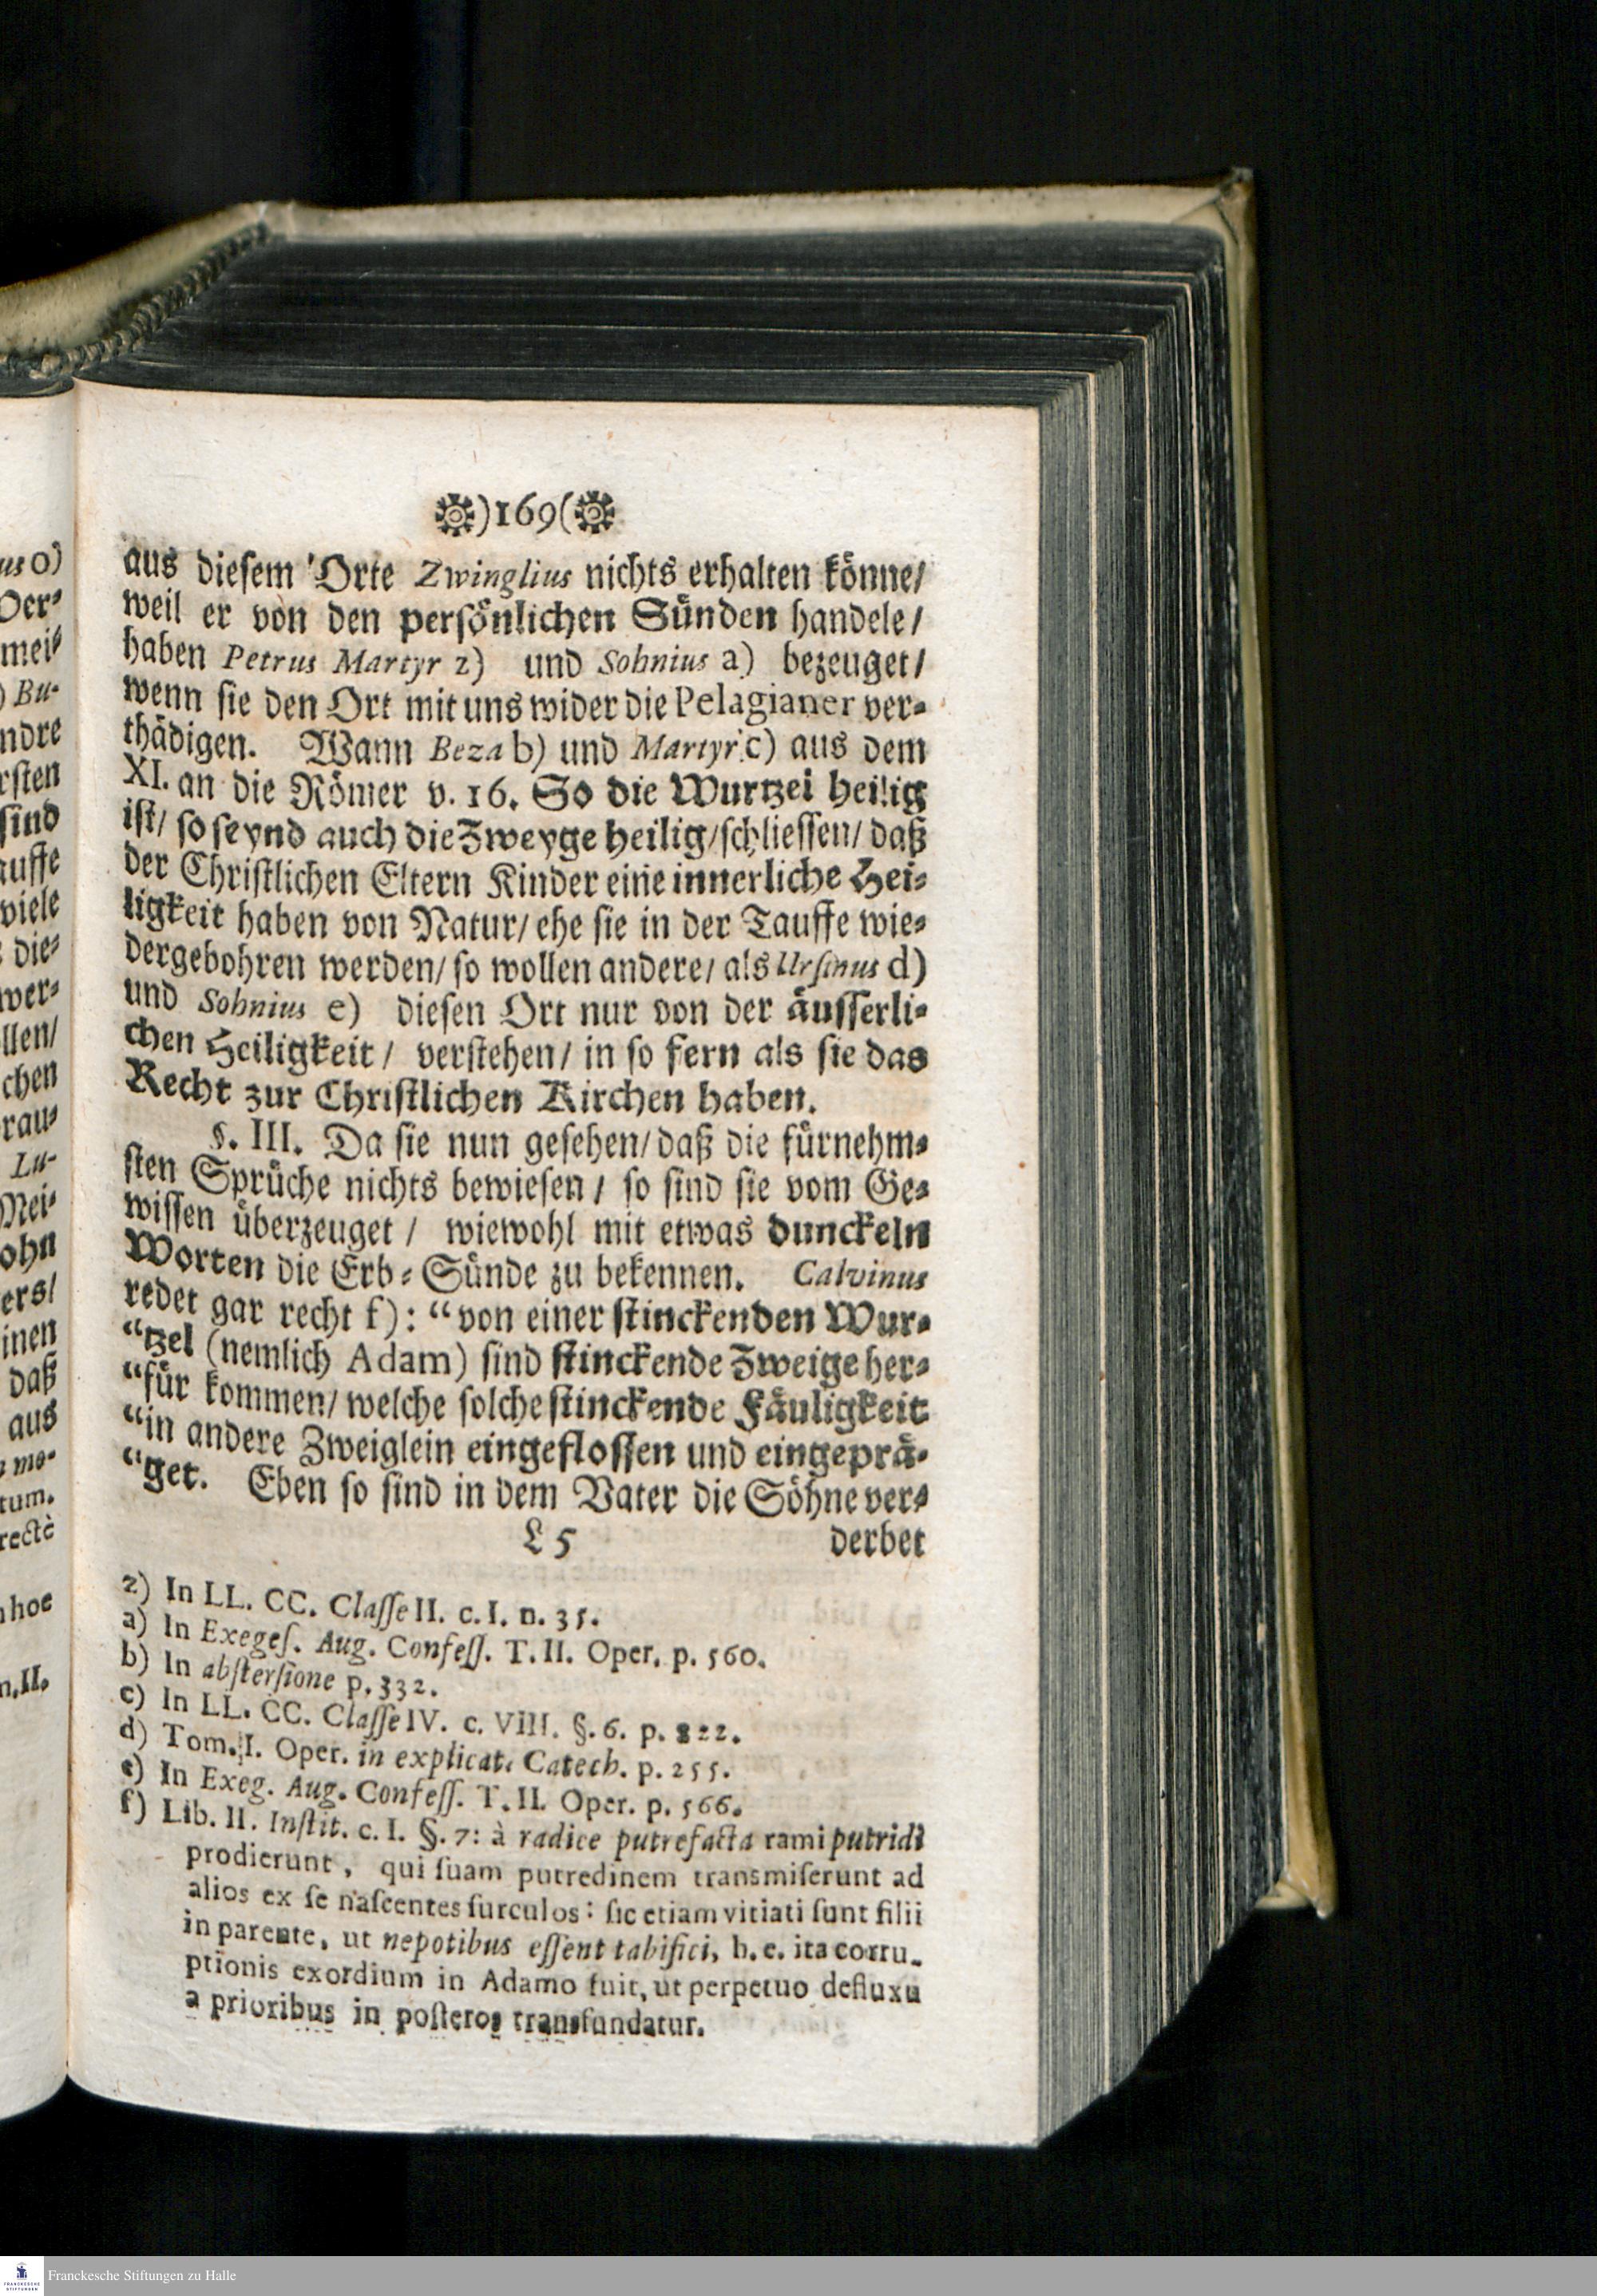 )169(
aus diesem Orte Zwinglius nichts erhalten könne/
weil er von den persönlichen Sünden handele/
haben Petrus Martyr z) und Sohnius a) bezeuget/
wenn sie den Ort mit uns wider die Pelagianer ver-
thädigen. Wann Beza b) und Martyr c) aus dem
XI. an die Römer v. 16. So die Wurtzel heilig
ist/ so seynd auch die Zweyge heilig/ schliessen/ daß
der Christlichen Eltern Kinder eine innerliche Hei-
ligkeit haben von Natur/ ehe sie in der Tauffe wie-
dergebohren werden/ so wollen andere/ als Ursinus d)
und Sohnius e) diesen Ort nur von der äusserli-
chen Heiligkeit/ verstehen/ in so fern als sie das
Recht zur Christlichen Kirchen haben.
§. III. Da sie nun gesehen/ daß die fürnehm-
sten Sprüche nichts bewiesen/ so sind sie vom Ge-
wissen überzeuget/ wiewohl mit etwas dunckeln
Worten die Erb-Sünde zu bekennen. Calvinus
redet gar recht f): “von einer stinckenden Wur-
“tzel (nemlich Adam) sind stinckende Zweige her-
“für kommen/ welche solche stinckende Fäuligkeit
“in andere Zweiglein eingeflossen und eingeprä-
“get. Eben so sind in dem Vater die Söhne ver-
L 5 derbet
z) In LL. CC. Classe II. c. I. n. 35.
a) In Exeges. Aug. Confess. T. II. Oper. p. 560.
b) In abstersione p. 332.
c) In LL. CC. Classe IV. c. VIII. §. 6. p. 822.
d) Tom. I. Oper. in explicat. Catech. p. 255.
e) In Exeg. Aug. Confess. T. II. Oper. p. 566.
f) Lib. II. Instit. c. I. §. 7: à radice putrefacta rami putridi
prodierunt, qui suam putredinem transmiserunt ad
alios ex se nascentes surculos: sic etiam vitiati sunt filii
in parente, ut nepotibus essent tabifici, h. e. ita corru-
ptionis exordium in Adamo fuit, ut perpetuo defluxu
a prioribus in posteros transfundatur.
us o)
Oer-
mei-
) Bu-
ndre
rsten
sind
auffe
viele
die-
wer-
llen/
chen
rau-
Lu-
Mei-
ohn
ers/
inen
daß
aus
mo-
tum.
rectè
hoc
n. II.
FRANCKESCHE
STIFTUNGEN
Franckesche Stiftungen zu Halle